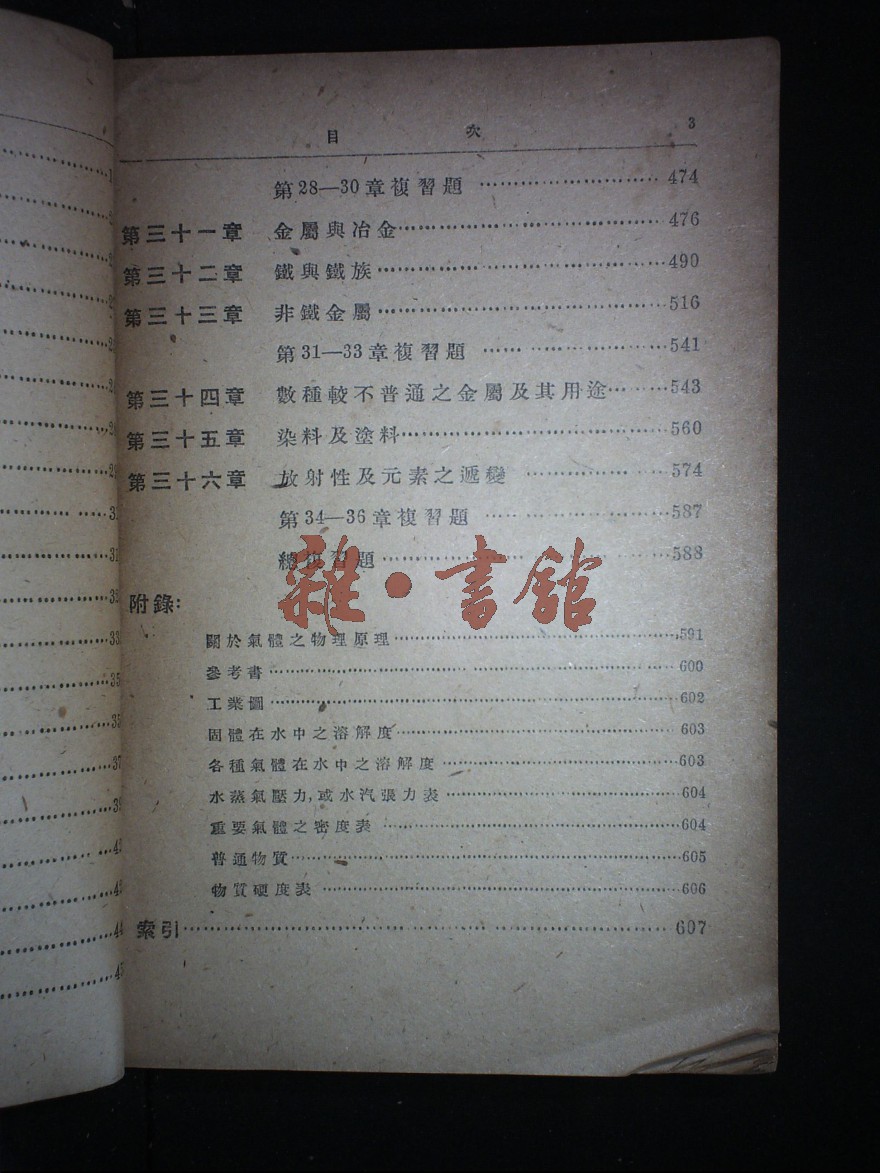 目 次 3
第28—30章複習題 474
第三十一章 金屬與冶金 476
第三十二章 鐵與鐵族 490
第三十三章 非鐵金屬 516
第31—33章複習題 541
第三十四章 數種較不普通之金屬及其用途 543
第三十五章 染料及塗料 560
第三十六章 放射性及元素之遞變 574
第34—36章複習題 587
總複習題 588
雜·書館
附錄:
關於氣體之物理原理 591
參考書 600
工業圖 602
固體在水中之溶解度 603
各種氣體在水中之溶解度 603
水蒸氣壓力,或水汽張力表 604
重要氣體之密度表 604
普通物質 605
物質硬度表 606
索引 607